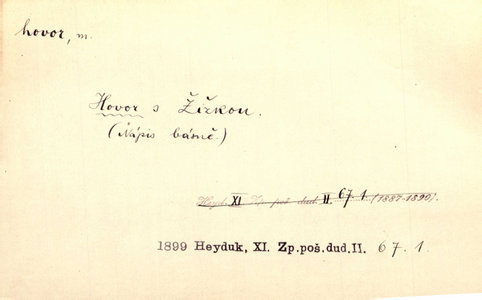 hovor, m.
Hovor s Žižkou.
(Nápis básně.)
Heyd. XI. Zp. poš. dud. II. 67. 1. (1887-1890).
1899 Heyduk, XI. Zp.poš.dud.II. 67.1.